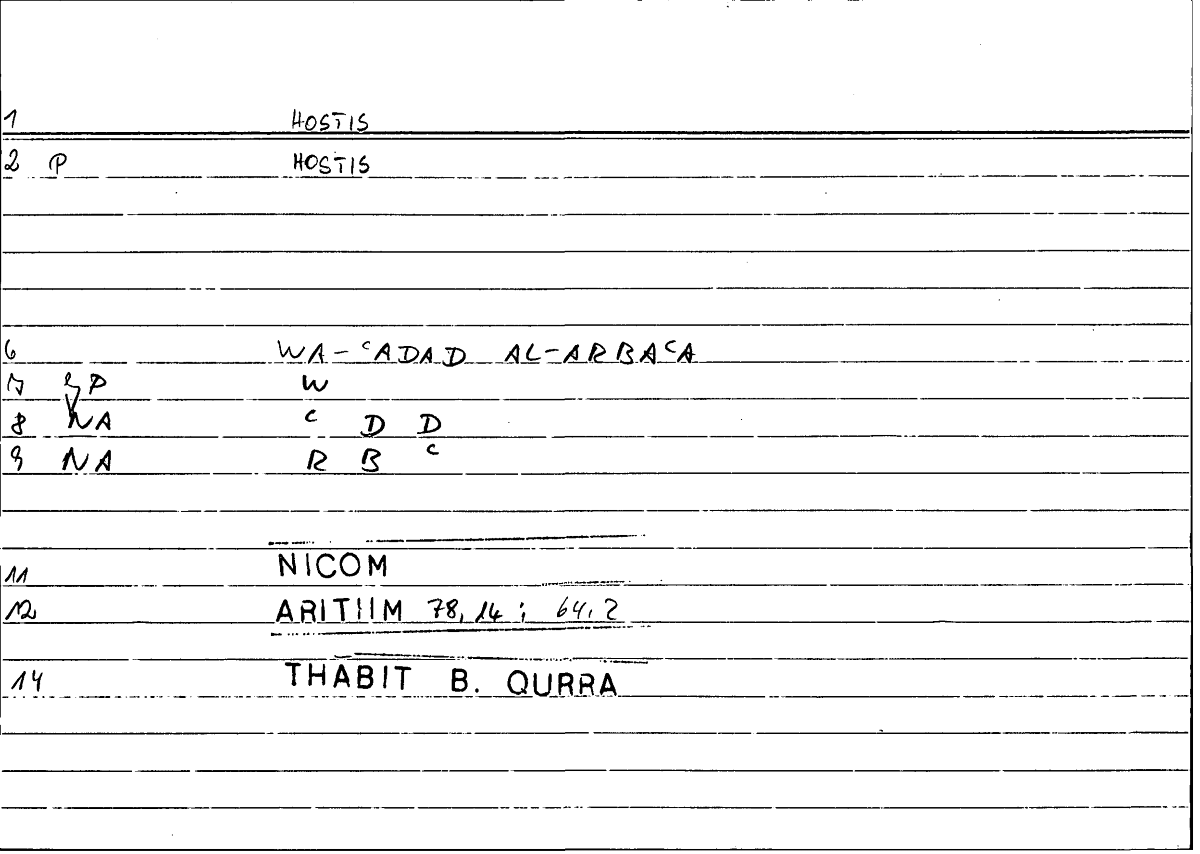 1 HOSTIS
2 P HOSTIS
6 WA-ʿADAD AL-ARBAʿA
7 P W
8 NA ʿ D D
9 NA R B ʿ
11 NICOM
12 ARITIIM 78,14; 64,2
14 THABIT B. QURRA